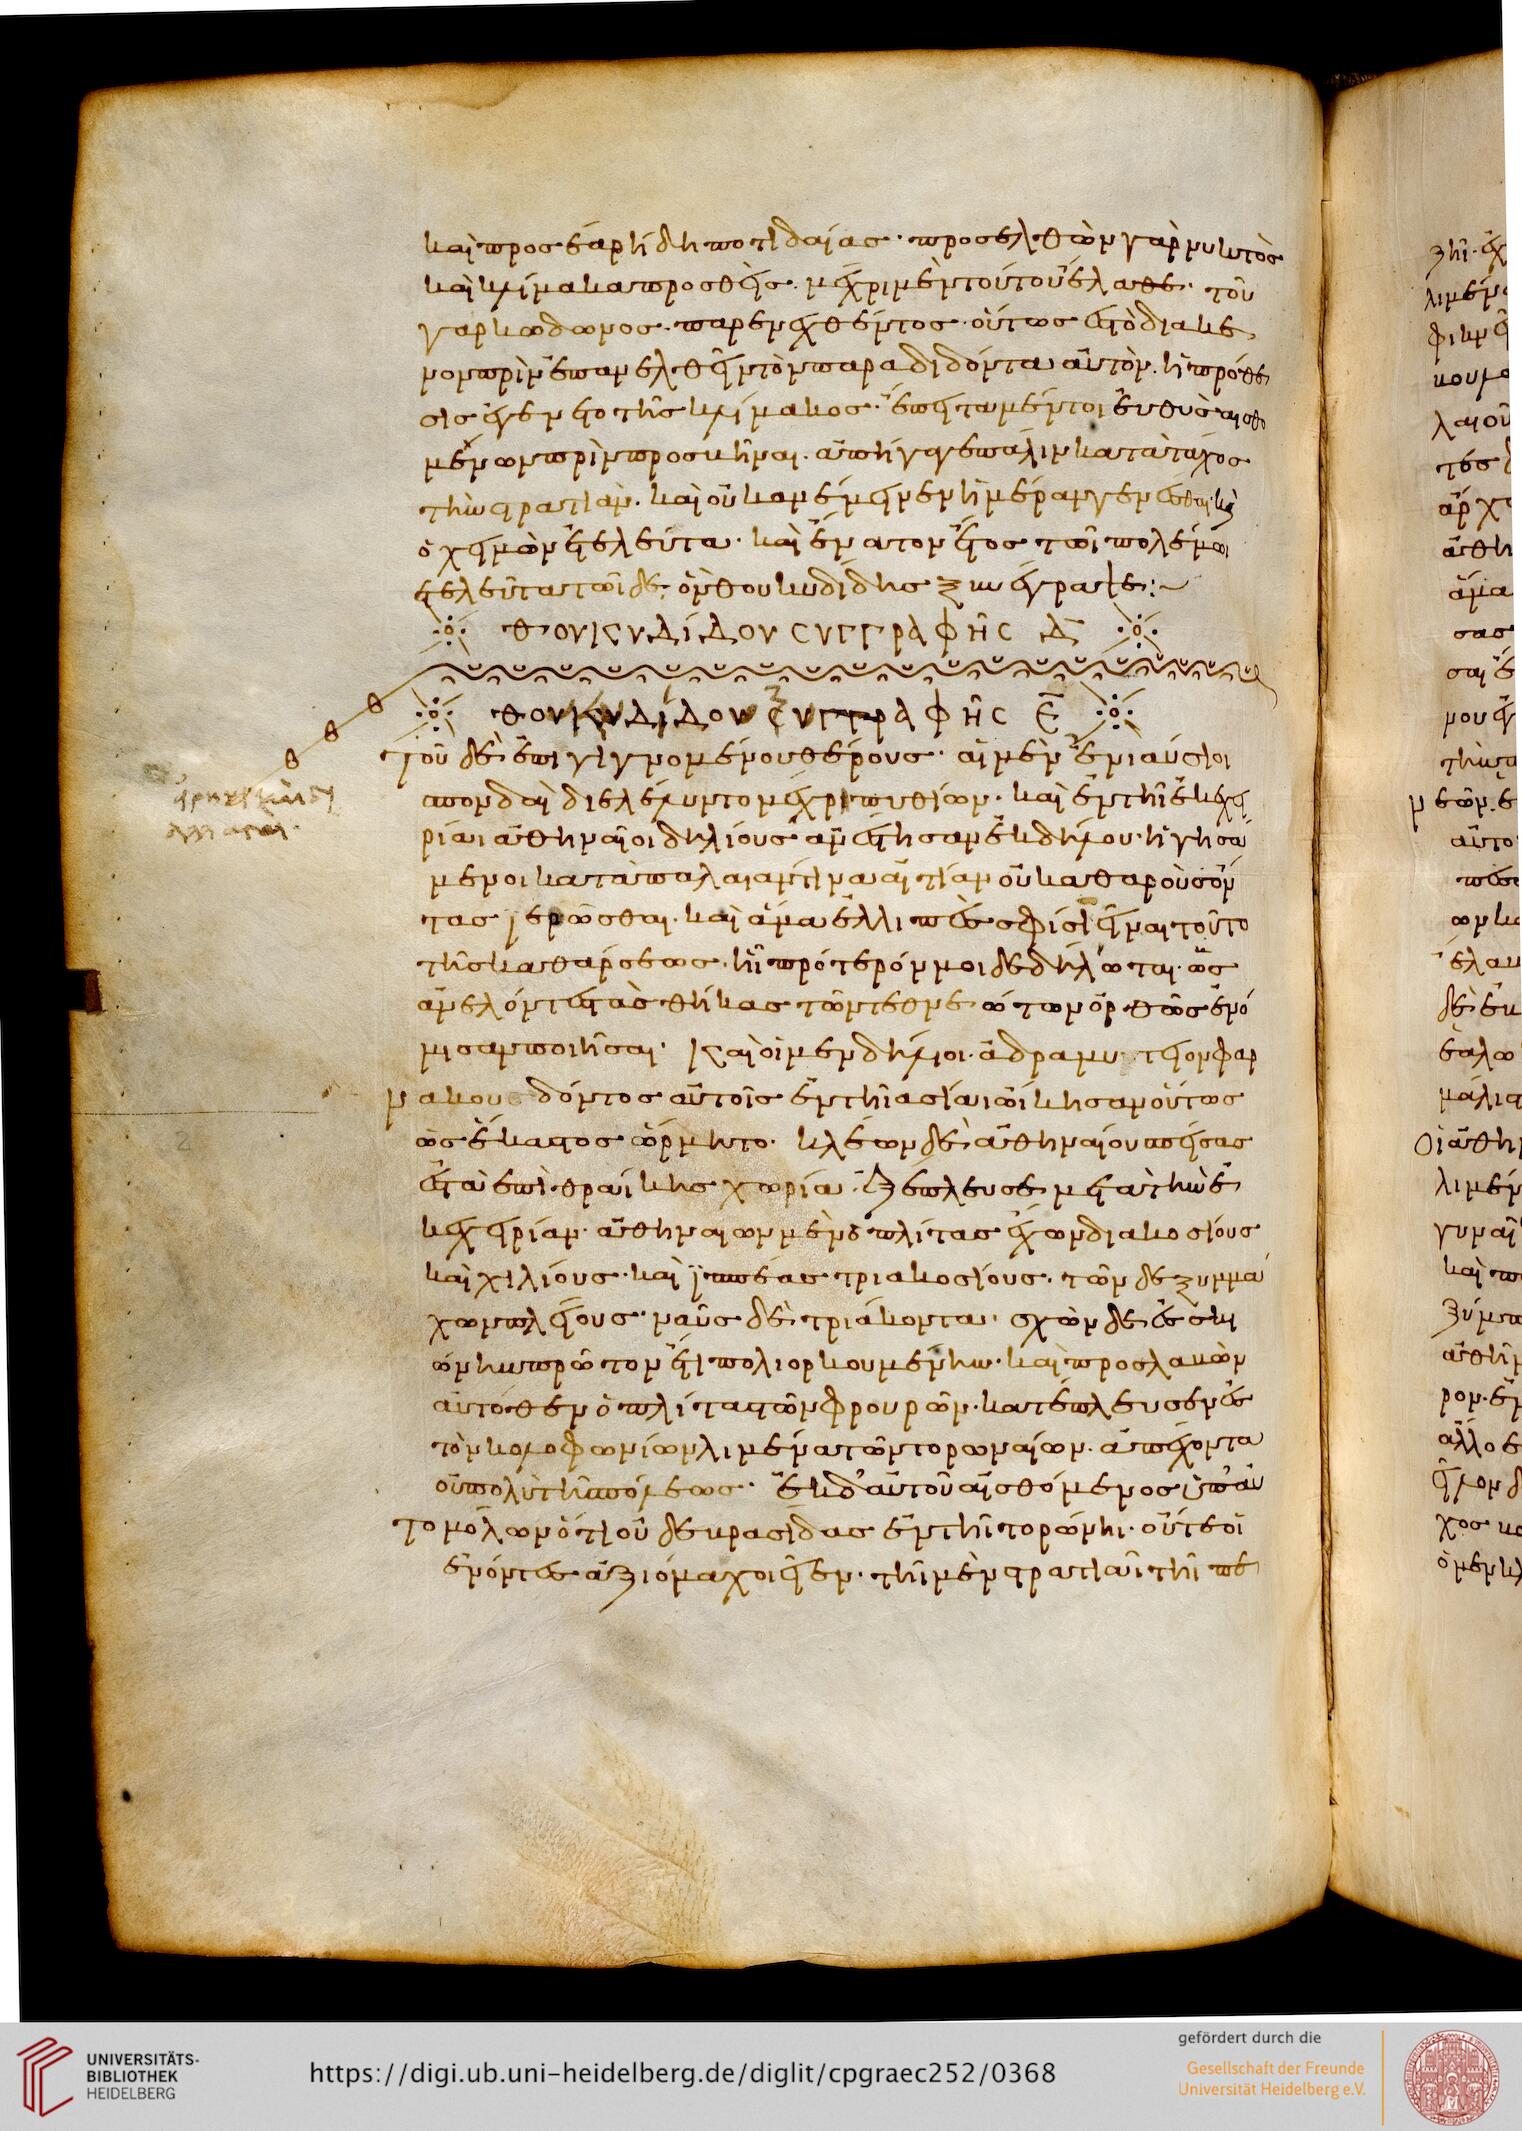 καὶ προσ ἔαρ ἤδη ποτιδαίασ· προσελθὼν γὰρ νυκτὸσ
καὶ κλίμακα προσθεὶσ· μέχρι μὲν τούτου ἔλαθε· τοῦ
γαρ κώδωνοσ παρενεχθέντοσ· οὕτωσ ἐσ τὸ διάκε
νον πρὶν ἐπανελθεῖν τὸν παραδιδόντα αὐτὸν· ἡ πρόσθε
σισ ἐγένετο τῆσ κλίμακοσ· ἔπειτα μέντοι ἐυθὺσ αἰσθο
μένων πρὶν προσβῆναι· ἀπήγαγε πάλιν κατατάχοσ
τὴν στρατιὰν· καὶ οὐκ ἀνέμεινεν ἡμέραν γενέσθαι· καὶ
ὁ χειμὼν ἐτελεύτα· καὶ ἔνατον ἔτοσ τῶι πολέμωι
ἐτελεύτα τῶιδε ὃν θουκυδίδησ ξυνέγραψε:~
ΘΟΥΚΥΔΙΔΟΥ ϹΥΓΓΡΑΦΗϹ Δ
ΘΟΥΚΥΔΙΔΟΥ ϹΥΓΓΡΑΦΗϹ Ε
Τοῦ δὲ ἐπιγιγνομένου θέρουσ· αἱ μὲν ἐνιαύσιοι
σπονδαὶ διελέλυντο μέχρι πυθίων· καὶ ἐν τῆι ἐκεχει
ρίαι ἀθηναῖοι δηλίουσ ἀνέστησαν ἐκ δήλου· ἡγησά
μενοι κατὰ παλαιάν τινα αἰτίαν οὐ καθαροὺσ ὄν
τασ ἱερῶσθαι· καὶ ἅμα ἐλλιπὲσ σφίσιν εἶναι τοῦτο
τῆσ καθάρσεωσ· ἧι πρότερόν μοι δεδήλωται· ὡσ
ἀνελόντεσ τὰσ θήκασ τῶν τεθνεώτων ὀρθῶσ ἐνό
μισαν ποιῆσαι· Καὶ οἱ μεν δήλιοι· ἀδραμυττεον φαρ
νάκου δόντοσ αὐτοῖσ ἐν τῆι ἀσίαι ὤικησαν οὕτωσ
ὡσ ἕκαστοσ ὥρμητο· κλέων δὲ ἀθηναίουσ πείσασ
ἐσ τὰ ἐπὶ θράικησ χωρία ἐξέπλευσε μετὰ τὴν ἐ
κεχειρίαν· ἀθηναίων μὲν ὁπλίτασ ἔχων διακοσίουσ
καὶ χιλίουσ· καὶ ἱππέασ τριακοσίουσ· τῶν δε ξυμμά
χων πλείουσ· ναῦσ δὲ τριάκοντα· σχὼν δὲ ἐσ σκι
ώνην πρῶτον ἔτι πολιορκουμένην· καὶ προσλαβὼν
αὐτόθεν ὁπλίτασ τῶν φρουρῶν· κατέπλευσεν ἐσ
τὸν κολοφωνίων λιμένα τῶν τορωναίων· ἀπέχοντα
οὐ πολὺ τῆσ πόλεωσ· ἐκ δ' αὐτοῦ αἰσθόμενοσ ὑπ' αὐ
τομόλων ὅτι οὐδε βρασίδασ ἐν τῆι τορώνηι· οὔτε οἱ
ἐνόντεσ ἀξιόμαχοι εἶεν· τῆι μὲν στρατιᾶι τῆι πε
UNIVERSITÄTS-
BIBLIOTHEK
HEIDELBERG
https://digi.ub.uni-heidelberg.de/diglit/cpgraec252/0368
gefördert durch die
Gesellschaft der Freunde
Universität Heidelberg e.V.